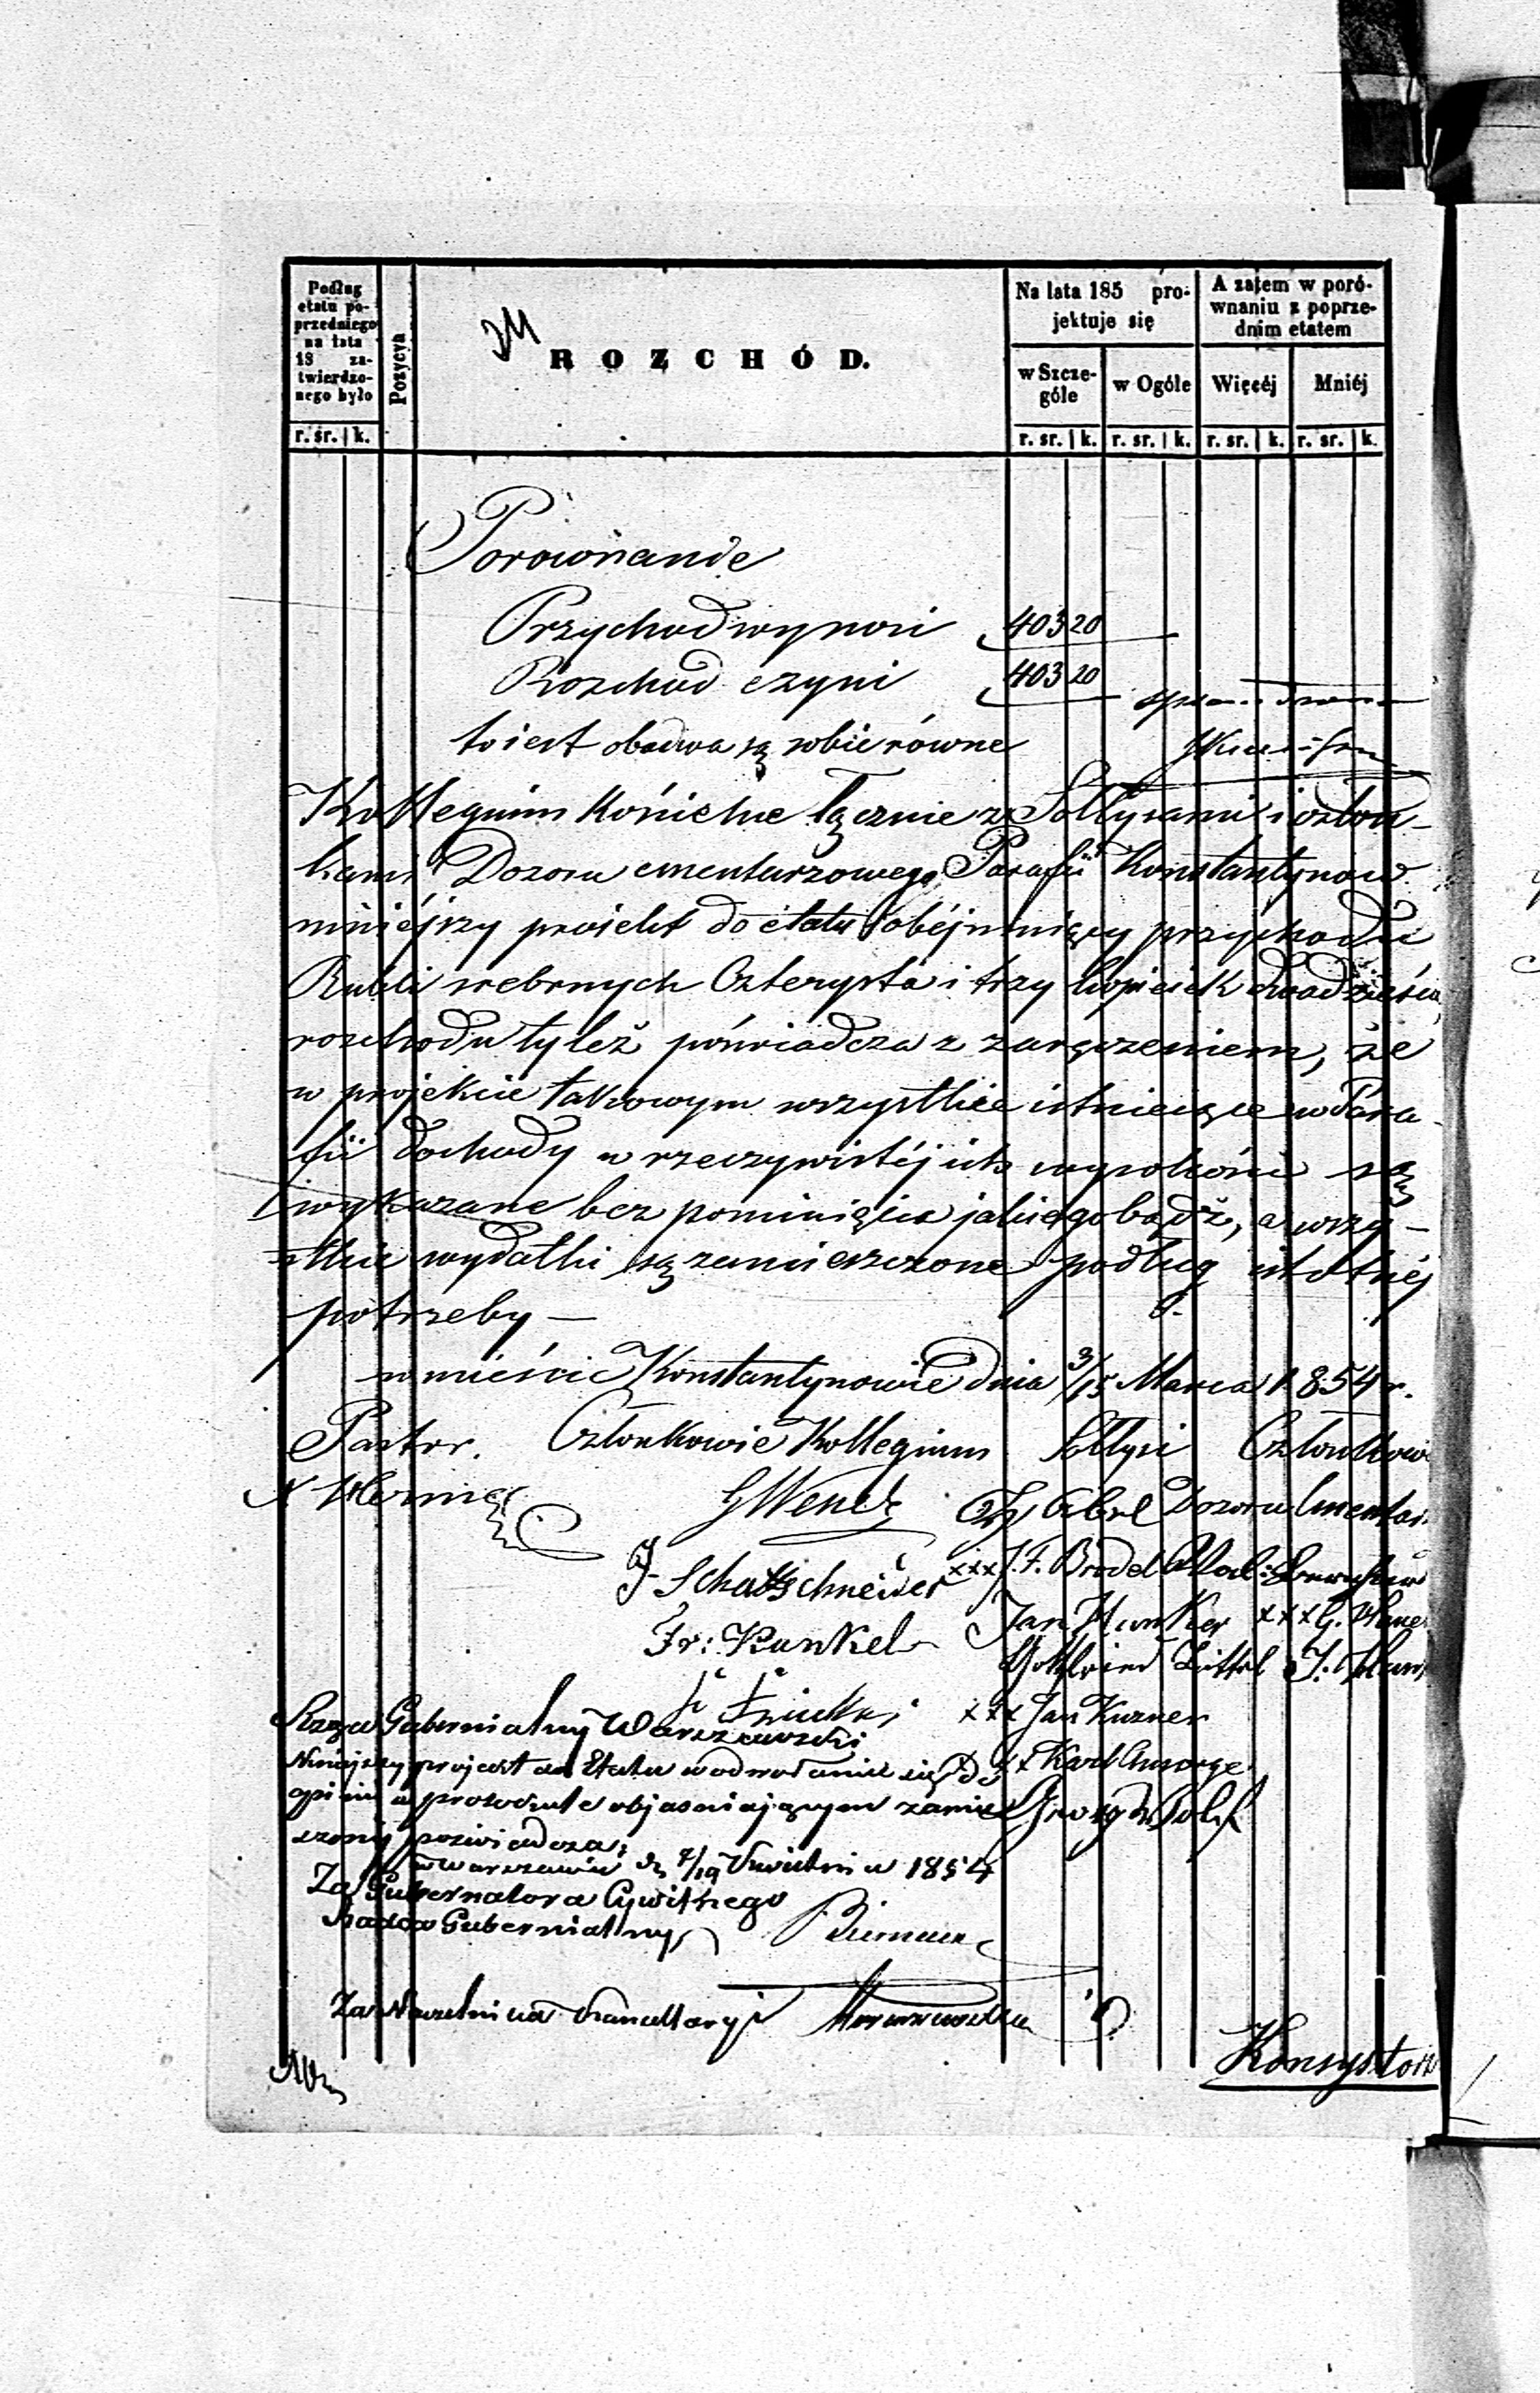 Podług
etatu po-
przedniego
na lata
18 za-
twierdzo-
nego było
Pozycya
ROZCHÓD.
Na lata 185 pro-
jektuje się
A zatem w poró-
wnaniu z poprze-
dnim etatem
w Szcze-
góle
w Ogóle
Więcéj
Mniéj
r. sr. k.
r. sr. k. r. sr. k. r. sr. k. r. sr. k.
Porownanie
Przychod wynosi 403 20
Rozchod czyni 403 20
to iest obadwa są sobie równe
Kollegium Kościelne łącznie z Sołtysami i człon-
kami Dozoru cmentarzowego Parafii Konstantynow
niniéjszy proiekt do etatu obéjmuiący przychodu
Rubli srebrnych Czterysta i trzy kopieiek dwadzieścia,
rozchodu tyleż poświadcza z zaręczeniem, że
w projekcie takowym wszystkie istnieiące w Para-
fii dochody w rzeczywistéj ich wysokości są
wykazane bez pominięcia jakiegobądź, a wszy-
stkie wydatki są zamieszczone podług istotnéj
potrzeby —
w mieście Konstantynowie dnia 3/15 Marca 1854 r.
Pastor. Członkowie Kollegium Sołtysi Członkow
GWende Abel Dozoru Cmentar
J. Schattschneider xxx J. F. Brodel
Fr: Kunkel Jan Hunker xxx G.
Gottfried Zittel J.
xxx Jan Kuzner
Rząd Gubernialny Warszawski
Niniejszy projekt do Etatu w odwołaniu się do xx Karl Ansorge
opinii w protokule objasniającym zamies
czonej poswiadcza;
w Warszawie d. 7/19 Kwietnia 1854
Za Gubernatora Cywilnego
Radca Gubernialny
Za Naczelnika Kancellaryi
Konsystorz